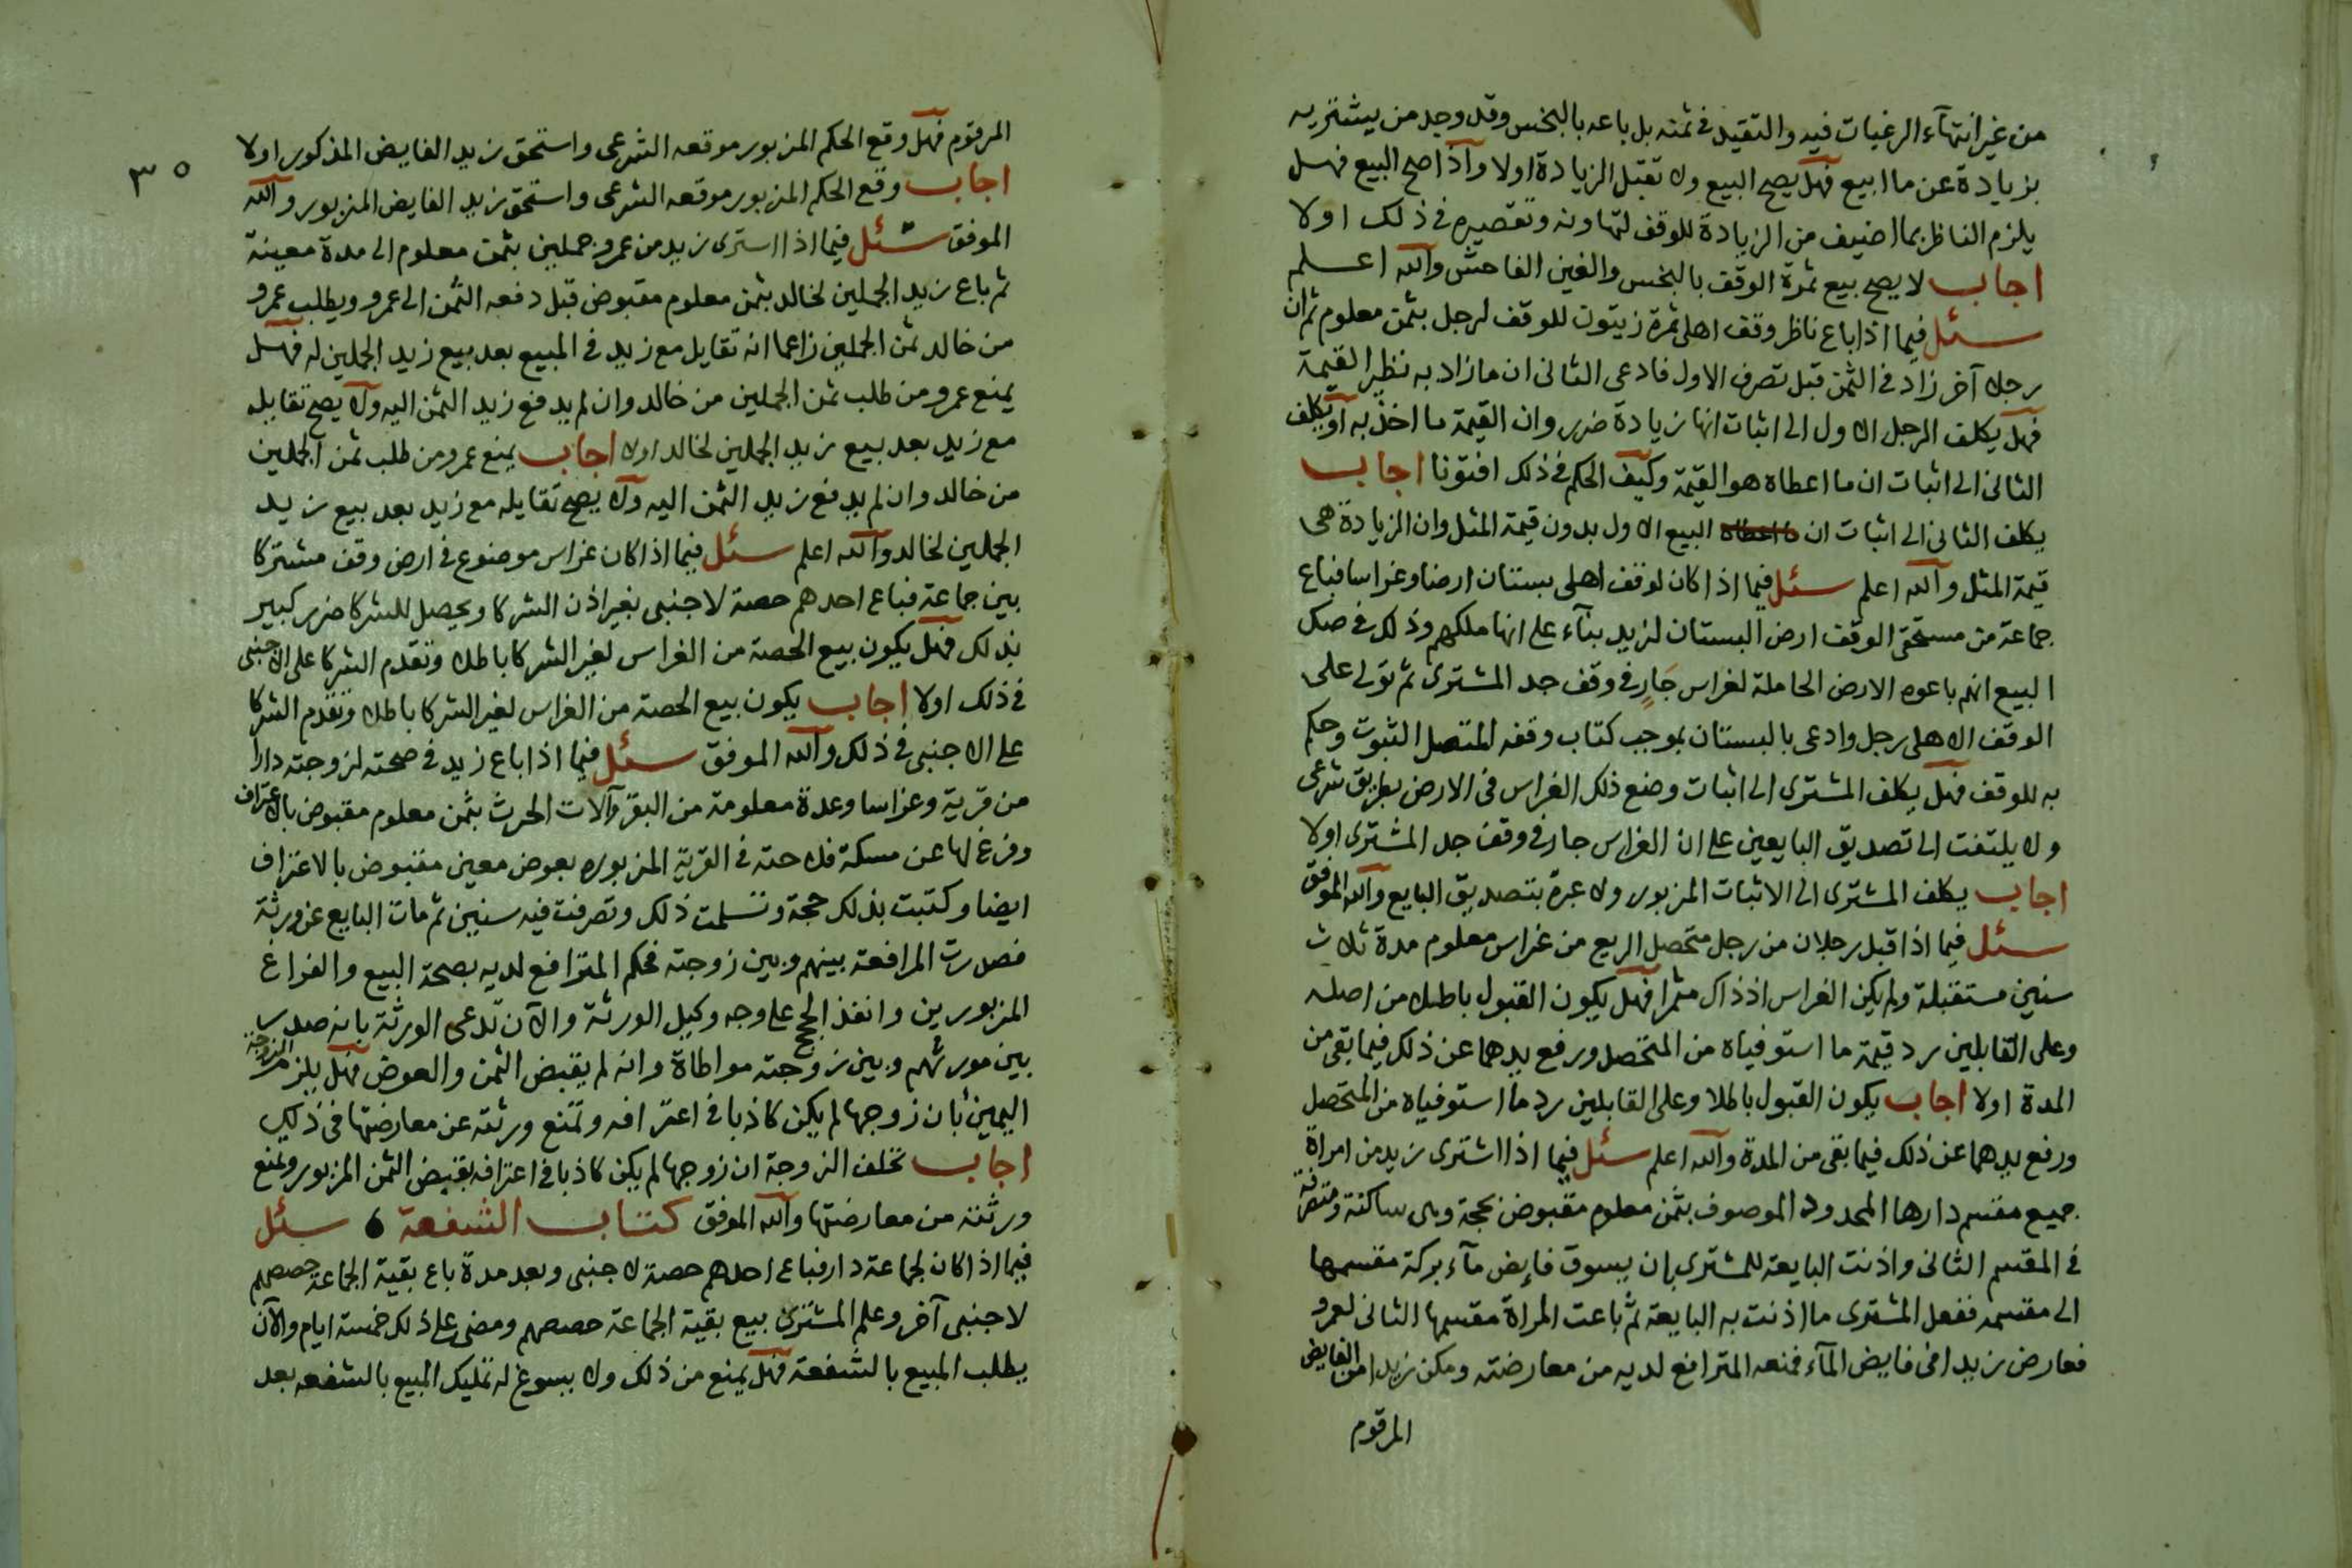 من غير انتهآء الرغبات فيه والتقيد في ثمنه بل باعه بالبخس وقد وجد من يشتريه
بزيادة عن ما ابيع فهل يصح البيع ولا تقبل الزيادة اولا واذا صح البيع فهل
يلزم الناظر بما اضيف من الزيادة للوقف لتهاونه وتقصيره في ذلك اولا
اجاب لا يصح بيع ثمرة الوقف بالبخس والغبن الفاحش والله اعلم
سئل فيما اذا باع ناظر وقف اهلي ثمرة زيتون للوقف لرجل بثمن معلوم ثم ان
رجلا آخر زاد في الثمن قبل تصرف الاول فادعى الثاني ان ما زاد به نظير القيمة
فهل يكلف الرجل الاول الى اثبات انها زيادة ضرر وان القيمة ما اخذ به او يكلف
الثاني الى اثبات ان ما اعطاه هو القيمة وكيف الحكم في ذلك افتونا اجاب
يكلف الثاني الى اثبات ان البيع الاول بدون قيمة المثل وان الزيادة هي
قيمة المثل والله اعلم سئل فيما اذا كان لوقف اهلي بستان ارضا وغراسا فباع
جماعة من مستحقي الوقف ارض البستان لزيد بنآء على انها ملكهم وذلك في صك
البيع انهم باعوه الارض الحاملة لغراس جار في وقف جد المشتري ثم تولى على
الوقف الاهلي رجل وادعى بالبستان بموجب كتاب وقفه المتصل الثبوت وحكم
به للوقف فهل يكلف المشتري الى اثبات وضع ذلك الغراس في الارض بطريق شرعي
ولا يلتفت الى تصديق البايعين على ان الغراس جار في وقف جد المشتري اولا
اجاب يكلف المشتري الى الاثبات المزبور ولا عبرة بتصديق البايع والله الموفق
سئل فيما اذا قبل رجلان من رجل متحصل الريع من غراس معلوم مدة ثلاث
سنين مستقبلة ولم يكن الغراس اذ ذاك مثمرا فهل يكون القبول باطلا من اصله
وعلى القابلين رد قيمة ما استوفياه من المتحصل ورفع يدهما عن ذلك فيما بقي من
المدة اولا اجاب يكون القبول باطلا وعلى القابلين رد ما استوفياه من المتحصل
ورفع يدهما عن ذلك فيما بقي من المدة والله اعلم سئل فيما اذا اشترى زيد من امراة
جميع مقسم دارها المحدود الموصوف بثمن معلوم مقبوض بحجة وهي ساكنة ومتصرفة
في المقسم الثاني واذنت البايعة للمشتري بان يسوق فايض مآء بركة مقسمها
الى مقسمه ففعل المشتري ما اذنت به البايعة ثم باعت المراة مقسمها الثاني لعمرو
فعارض زيدا في فايض المآء فمنعه المترافع لديه من معارضته ومكن زيدا من الفايض
المرقوم
٣٥
المرقوم فهل وقع الحكم المزبور موقعه الشرعي واستحق زيد الفايض المذكور اولا
اجاب وقع الحكم المزبور موقعه الشرعي واستحق زيد الفايض المزبور والله
الموفق سئل فيما اذا اشترى زيد من عمرو جملين بثمن معلوم الى مدة معينة
ثم باع زيد الجملين لخالد بثمن معلوم مقبوض قبل دفعه الثمن الى عمرو ويطلب عمرو
من خالد ثمن الجملين زاعما انه تقايل مع زيد في المبيع بعد بيع زيد الجملين له فهل
يمنع عمرو من طلب ثمن الجملين من خالد وان لم يدفع زيد الثمن اليه ولا يصح تقايله
مع زيد بعد بيع زيد الجملين لخالد اولا اجاب يمنع عمرو من طلب ثمن الجملين
من خالد وان لم يدفع زيد الثمن اليه ولا يصح تقايله مع زيد بعد بيع زيد
الجملين لخالد والله اعلم سئل فيما اذا كان غراس موضوع في ارض وقف مشتركا
بين جماعة فباع احدهم حصة لاجنبي بغير اذن الشركا ويحصل للشركا ضرر كبير
بذلك فهل يكون بيع الحصة من الغراس لغير الشركا باطلا وتقدم الشركا على الاجنبي
في ذلك اولا اجاب يكون بيع الحصة من الغراس لغير الشركا باطلا وتقدم الشركا
على الاجنبي في ذلك والله الموفق سئل فيما اذا باع زيد في صحته لزوجته دارا
من قرية وغراسا وعدة معلومة من البقر وآلات الحرث بثمن معلوم مقبوض بالاعتراف
وفرغ لها عن مسكة فلاحته في القرية المزبوره بعوض معين مقبوض بالاعتراف
ايضا وكتبت بذلك حجة وتسلمت ذلك وتصرفت فيه سنين ثم مات البايع عن ورثة
فصدرت المرافعة بينهم وبين زوجته فحكم المترافع لديه بصحة البيع والفراغ
المزبورين وانفذ الحجج على وجه وكيل الورثة والآن تدعي الورثة بانه صدر
بين مورثهم وبين زوجته مواطاة وانه لم يقبض الثمن والعوض فهل يلزم الزوجة
اليمين بان زوجها لم يكن كاذبا في اعترافه وتمنع ورثته عن معارضتها في ذلك
اجاب تحلف الزوجة ان زوجها لم يكن كاذبا في اعترافه بقبض الثمن المزبور وتمنع
ورثته من معارضتها والله الموفق كتاب الشفعة سئل
فيما اذا كان لجماعة دار فباع احدهم حصة لاجنبي وبعد مدة باع بقية الجماعة حصصهم
لاجنبي آخر وعلم المشتري بيع بقية الجماعة حصصهم ومضى على ذلك خمسة ايام والآن
يطلب المبيع بالشفعة فهل يمنع من ذلك ولا يسوغ له تمليك المبيع بالشفعه بعد